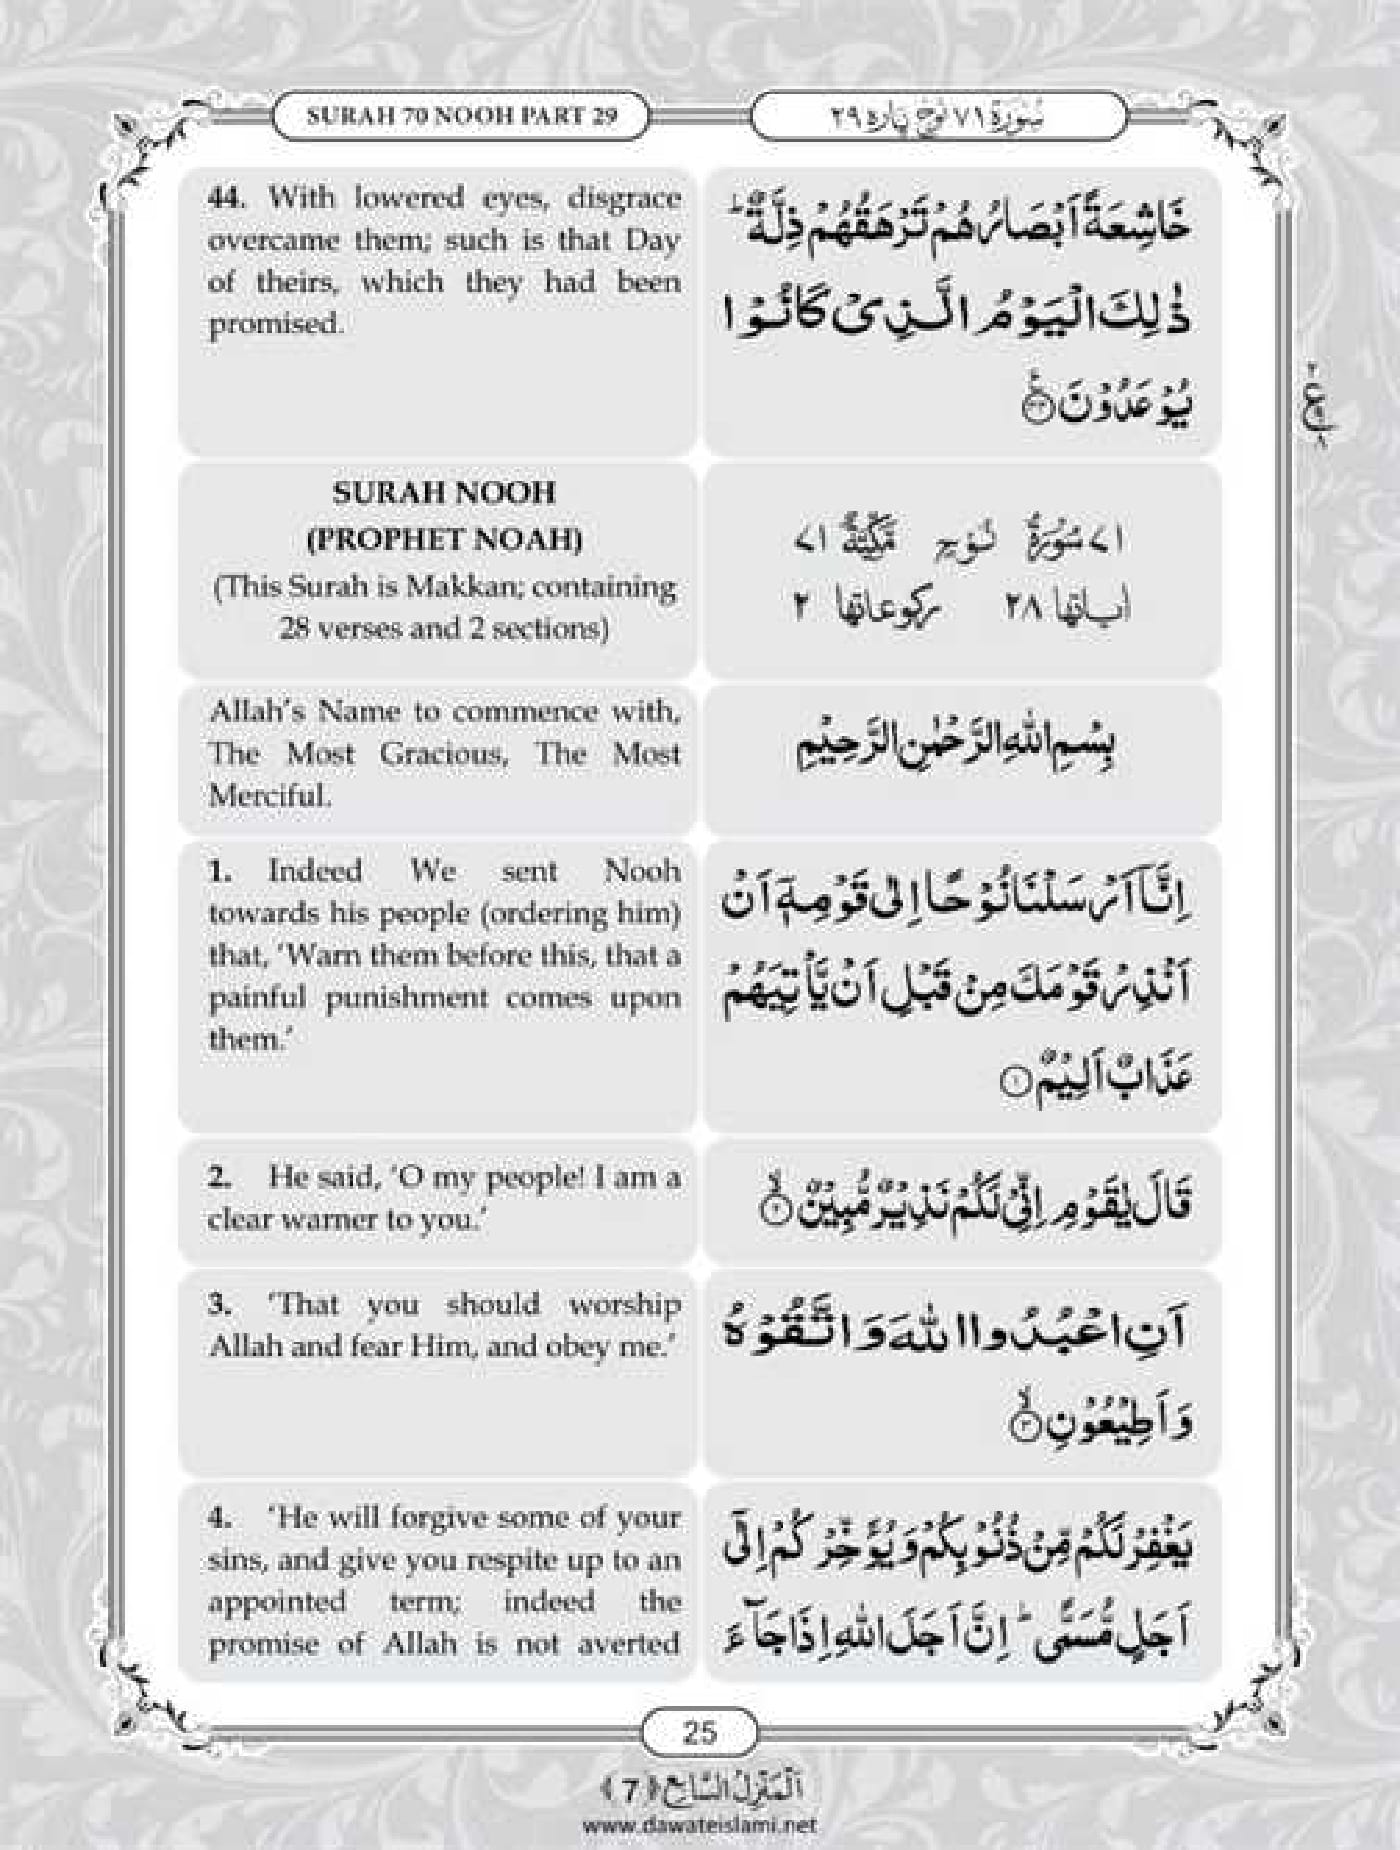 SURAH 70 NOOH PART 29
سُوْرَة ٧١ نُوْح پارہ ٢٩
44. With lowered eyes, disgrace
overcame them; such is that Day
of theirs, which they had been
promised.
خَاشِعَةً اَبْصَارُهُمْ تَرْهَقُهُمْ ذِلَّةٌ ؕ
ذٰلِكَ الْيَوْمُ الَّذِىْ كَانُوْا
يُوْعَدُوْنَ ۟
ع
SURAH NOOH
(PROPHET NOAH)
(This Surah is Makkan; containing
28 verses and 2 sections)
٧١ سُوْرَةُ نُوْحٍ مَّكِّيَّةٌ ٧١
اٰیاتها ٢٨ رکوعاتها ٢
Allah’s Name to commence with,
The Most Gracious, The Most
Merciful.
بِسْمِ اللهِ الرَّحْمٰنِ الرَّحِيْمِ
1. Indeed We sent Nooh
towards his people (ordering him)
that, ‘Warn them before this, that a
painful punishment comes upon
them.’
اِنَّاۤ اَرْسَلْنَا نُوْحًا اِلٰى قَوْمِهٖۤ اَنْ
اَنْذِرْ قَوْمَكَ مِنْ قَبْلِ اَنْ يَّاْتِيَهُمْ
عَذَابٌ اَلِيْمٌ ۝١
2. He said, ‘O my people! I am a
clear warner to you.’
قَالَ يٰقَوْمِ اِنِّىْ لَكُمْ نَذِيْرٌ مُّبِيْنٌ ۙ۝٢
3. ‘That you should worship
Allah and fear Him, and obey me.’
اَنِ اعْبُدُوا اللهَ وَ اتَّقُوْهُ
وَ اَطِيْعُوْنِ ۙ۝٣
4. ‘He will forgive some of your
sins, and give you respite up to an
appointed term; indeed the
promise of Allah is not averted
يَغْفِرْ لَكُمْ مِّنْ ذُنُوْبِكُمْ وَيُؤَخِّرْكُمْ اِلٰۤى
اَجَلٍ مُّسَمًّى ؕ اِنَّ اَجَلَ اللهِ اِذَا جَآءَ
25
اَلْمَنْزِلُ السَّابِع ﴿7﴾
www.dawateislami.net